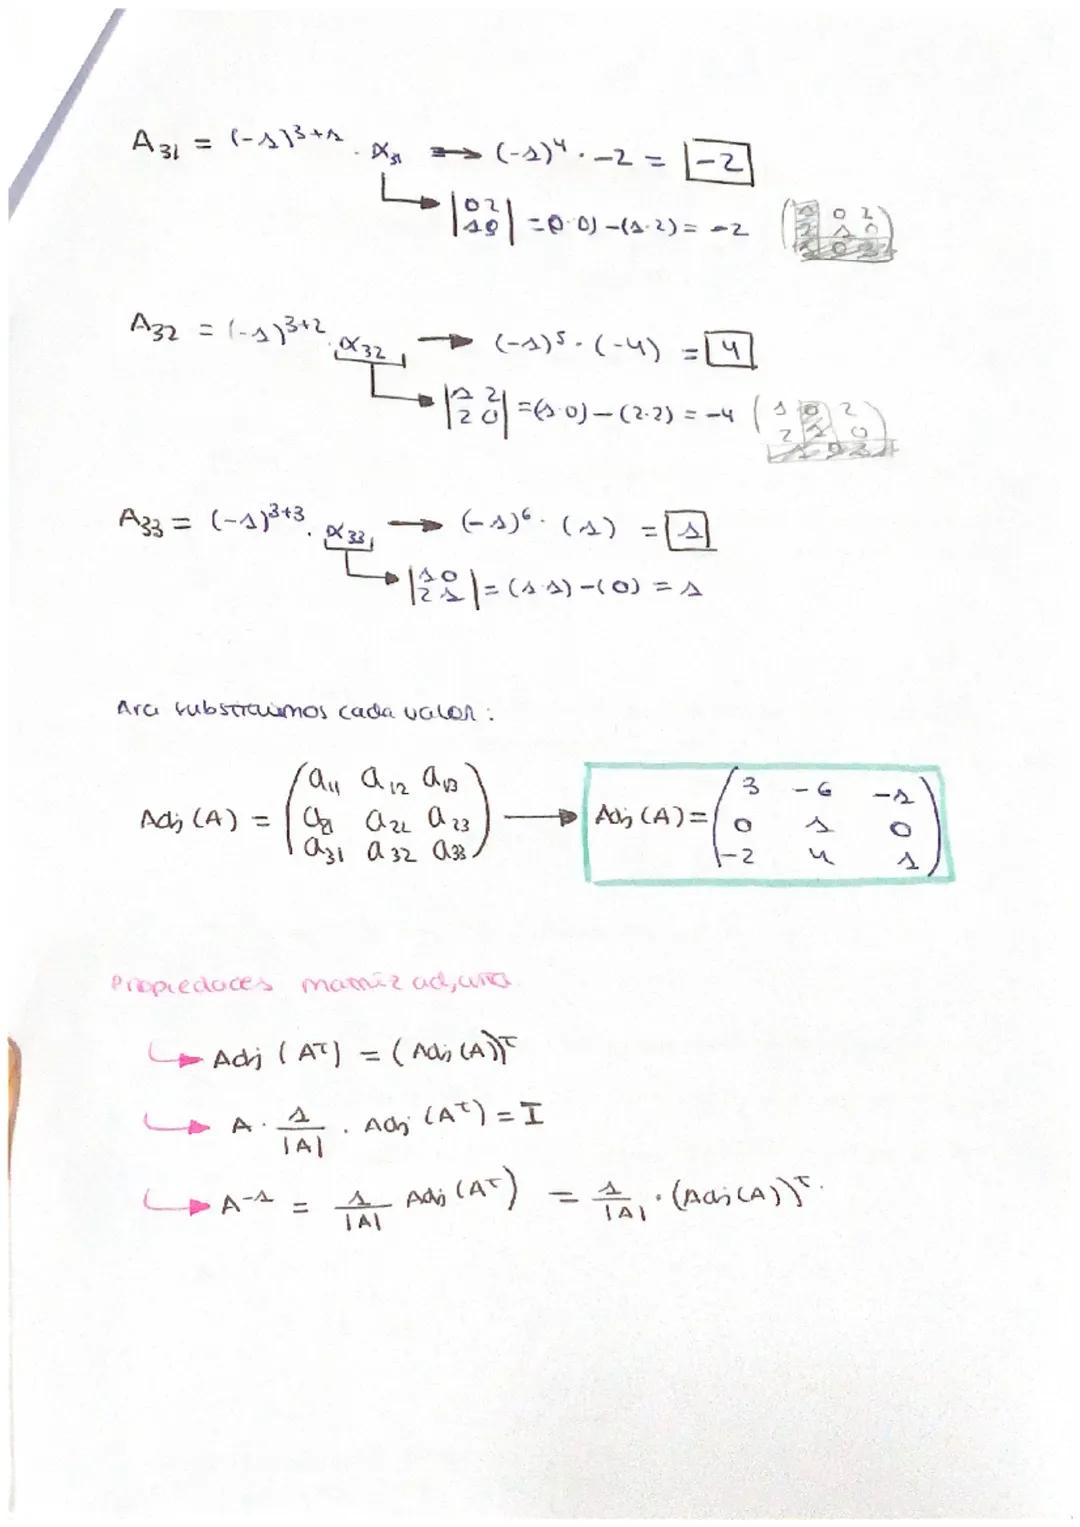 A₃₁ = (-1)³⁺¹ · α₃₁ → (-1)⁴ · -2 = -2
|0 2; 1 0| = (0·0) - (1·2) = -2 (1 0 2; 2 1 0; 1 0 3)
A₃₂ = (-1)³⁺² · α₃₂ → (-1)⁵ · (-4) = 4
|1 2; 2 0| = (1·0) - (2·2) = -4 (1 0 2; 2 1 0; 1 0 3)
A₃₃ = (-1)³⁺³ · α₃₃ → (-1)⁶ · (1) = 1
|1 0; 2 1| = (1·1) - (0) = 1
Ara substituimos cada valor:
Adj (A) = (a₁₁ a₁₂ a₁₃; a₂₁ a₂₂ a₂₃; a₃₁ a₃₂ a₃₃) → Adj (A) = (3 -6 -1; 0 1 0; -2 4 1)
Propiedades matriz adjunta
Adj (Aᵀ) = (Adj (A))ᵀ
A · 1/|A| · Adj (Aᵗ) = I
A⁻¹ = 1/|A| Adj (Aᵀ) = 1/|A| · (Adj (A))ᵀ.